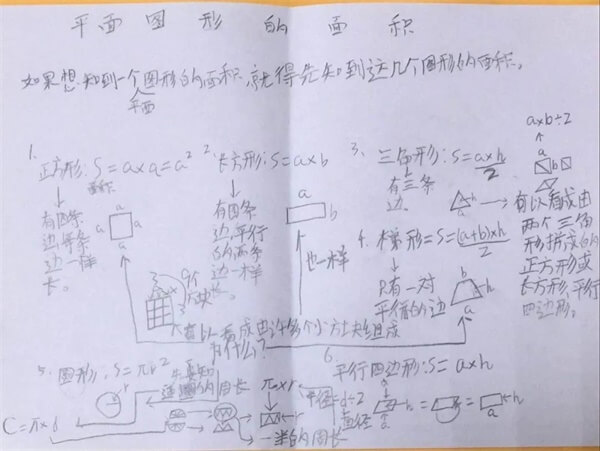 平面图形的面积
如果想知到一个图形的面积,就得先知到这几个图形的面积。
平面
1.
正方形:S=a×a=a²
面积
有四条
边,每条
边一样
长。
a
a
a
a
2.
长方形:S=a×b
有四条
边,平行
的两条
边一样
长。
a
b
也一样
3
3
9个
方块
可以看成由许多个小方块组成
为什么?
3.
三角形:S=a×h/2
有三条
边。
h
a
a×b÷2
a
b
可以看成由
两个三角
形拼成的
正方形或
长方形,平行
四边形。
4.
梯形=S=(a+b)×h/2
只有一对
平行的边
b
h
a
5.
圆形:S=πr²
先要知
道圆的周长
r
C=π×d
π×r
r
一半的周长
半径=d÷2
直径
6
平行四边形:S=a×h
h
a
=
=
h
a